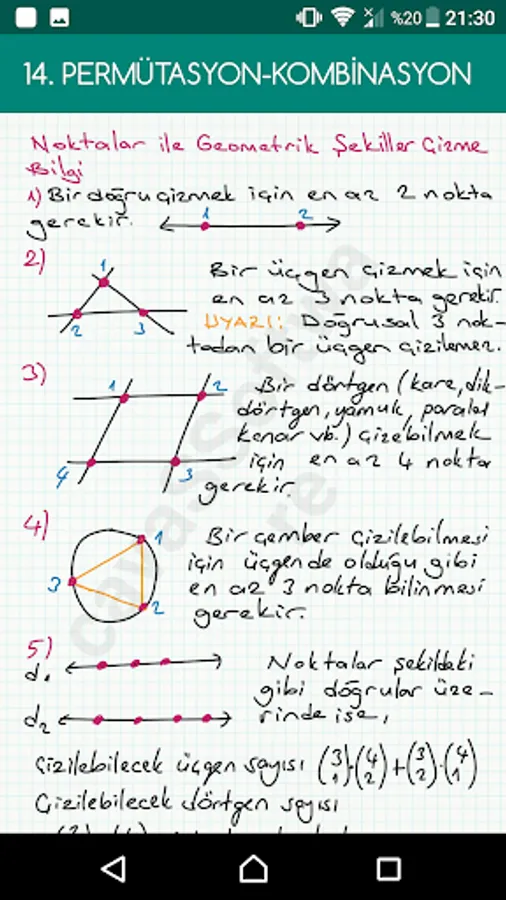 %20 21:30
14. PERMÜTASYON-KOMBİNASYON
Noktalar ile Geometrik Şekiller Çizme
Bilgi
1) Bir doğru çizmek için en az 2 nokta
gerekir.
1 2
2)
1
2 3
Bir üçgen çizmek için
en az 3 nokta gerekir.
UYARI: Doğrusal 3 nok-
tadan bir üçgen çizilemez.
3)
1 2
4 3
Bir dörtgen (kare, dik-
dörtgen, yamuk, paralel
kenar vb.) çizebilmek
için en az 4 nokta
gerekir.
4)
1
3
2
Bir çember çizilebilmesi
için üçgende olduğu gibi
en az 3 nokta bilinmesi
gerekir.
5)
d₁
d₂
Noktalar şekildeki
gibi doğrular üze-
rinde ise,
Çizilebilecek üçgen sayısı (3 1)·(4 2)+(3 2)·(4 1)
Çizilebilecek dörtgen sayısı